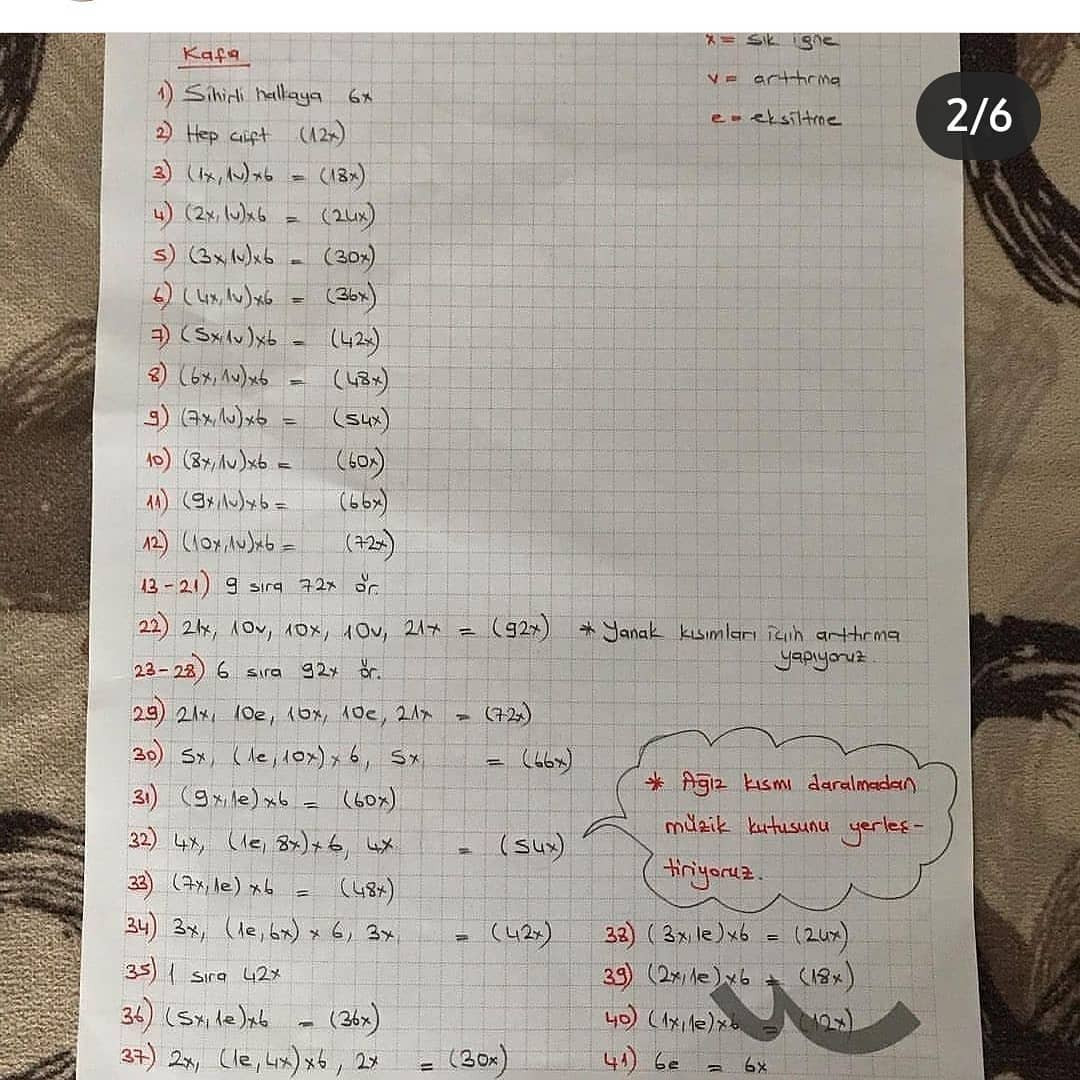 2/6
Kafa
x = sık iğne
v = arttırma
e = eksiltme
1) Sihirli halkaya 6x
2) Hep çift (12x)
3) (1x, 1v)x6 = (18x)
4) (2x, 1v)x6 = (24x)
5) (3x, 1v)x6 = (30x)
6) (4x, 1v)x6 = (36x)
7) (5x, 1v)x6 = (42x)
8) (6x, 1v)x6 = (48x)
9) (7x, 1v)x6 = (54x)
10) (8x, 1v)x6 = (60x)
11) (9x, 1v)x6 = (66x)
12) (10x, 1v)x6 = (72x)
13-21) 9 sıra 72x ör.
22) 21x, 10v, 10x, 10v, 21x = (92x) * Yanak kısımları için arttırma
yapıyoruz.
23-28) 6 sıra 92x ör.
29) 21x, 10e, 10x, 10e, 21x = (72x)
30) 5x, (1e, 10x)x6, 5x = (66x)
31) (9x, 1e)x6 = (60x)
32) 4x, (1e, 8x)x6, 4x = (54x)
33) (7x, 1e)x6 = (48x)
34) 3x, (1e, 6x)x6, 3x = (42x)
35) 1 sıra 42x
36) (5x, 1e)x6 = (36x)
37) 2x, (1e, 4x)x6, 2x = (30x)
* Ağız kısmı daralmadan
müzik kutusunu yerleş-
tiriyoruz.
38) (3x, 1e)x6 = (24x)
39) (2x, 1e)x6 = (18x)
40) (1x, 1e)x6 = (12x)
41) 6e = 6x